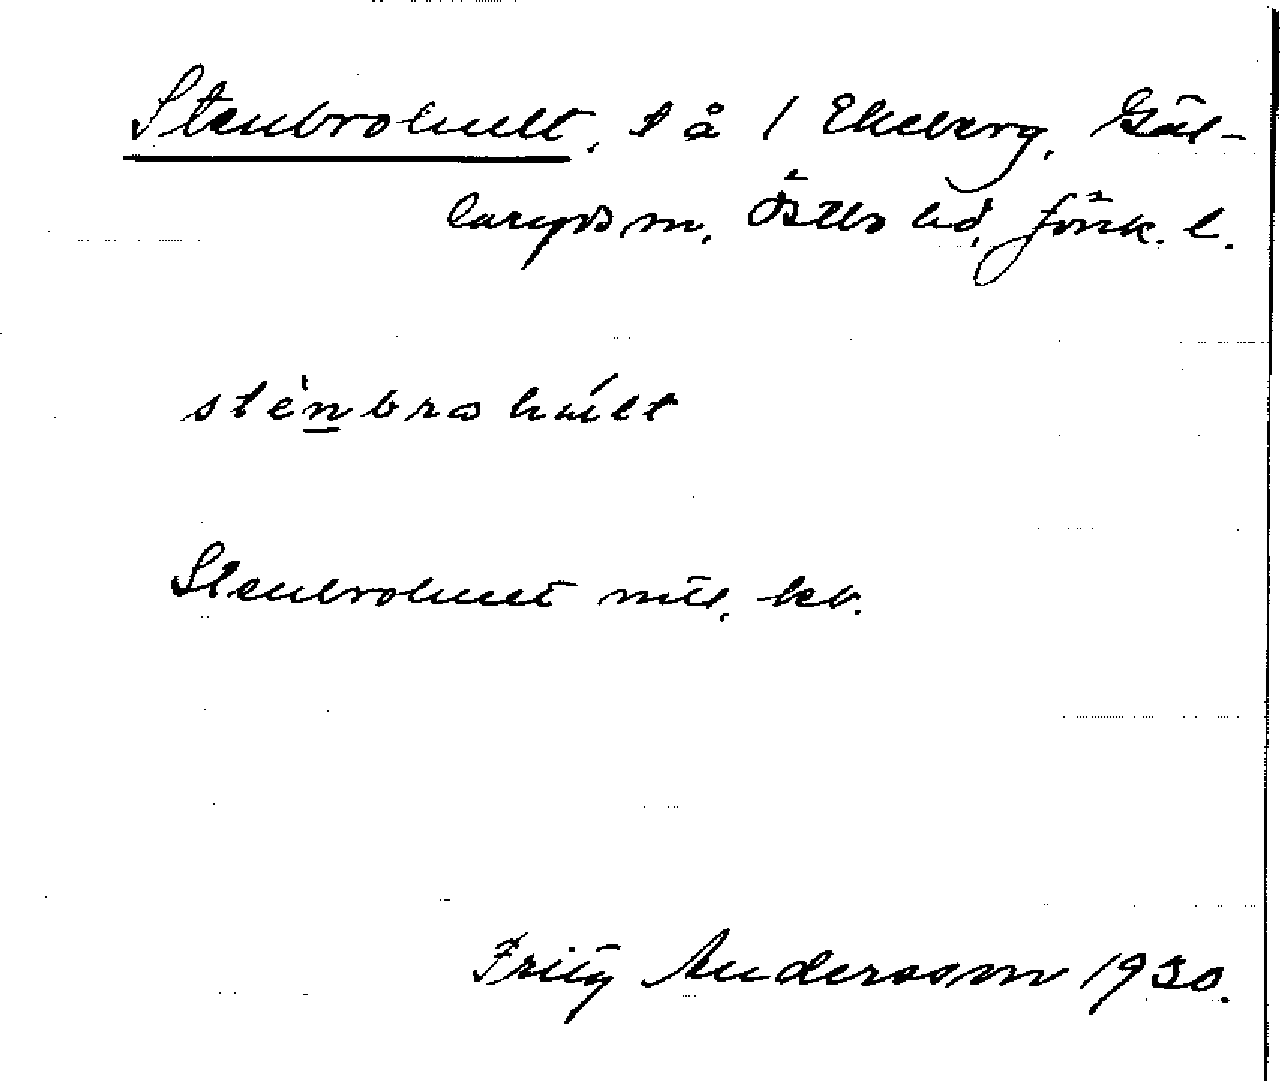 Stenbrohult, t å / Ekeberg, Gäl-
laryds sn, Östbo hd, Jönk. l.
stènbrohúlt
Stenbrohult mtl. kb.
Fritz Andersson 1930.